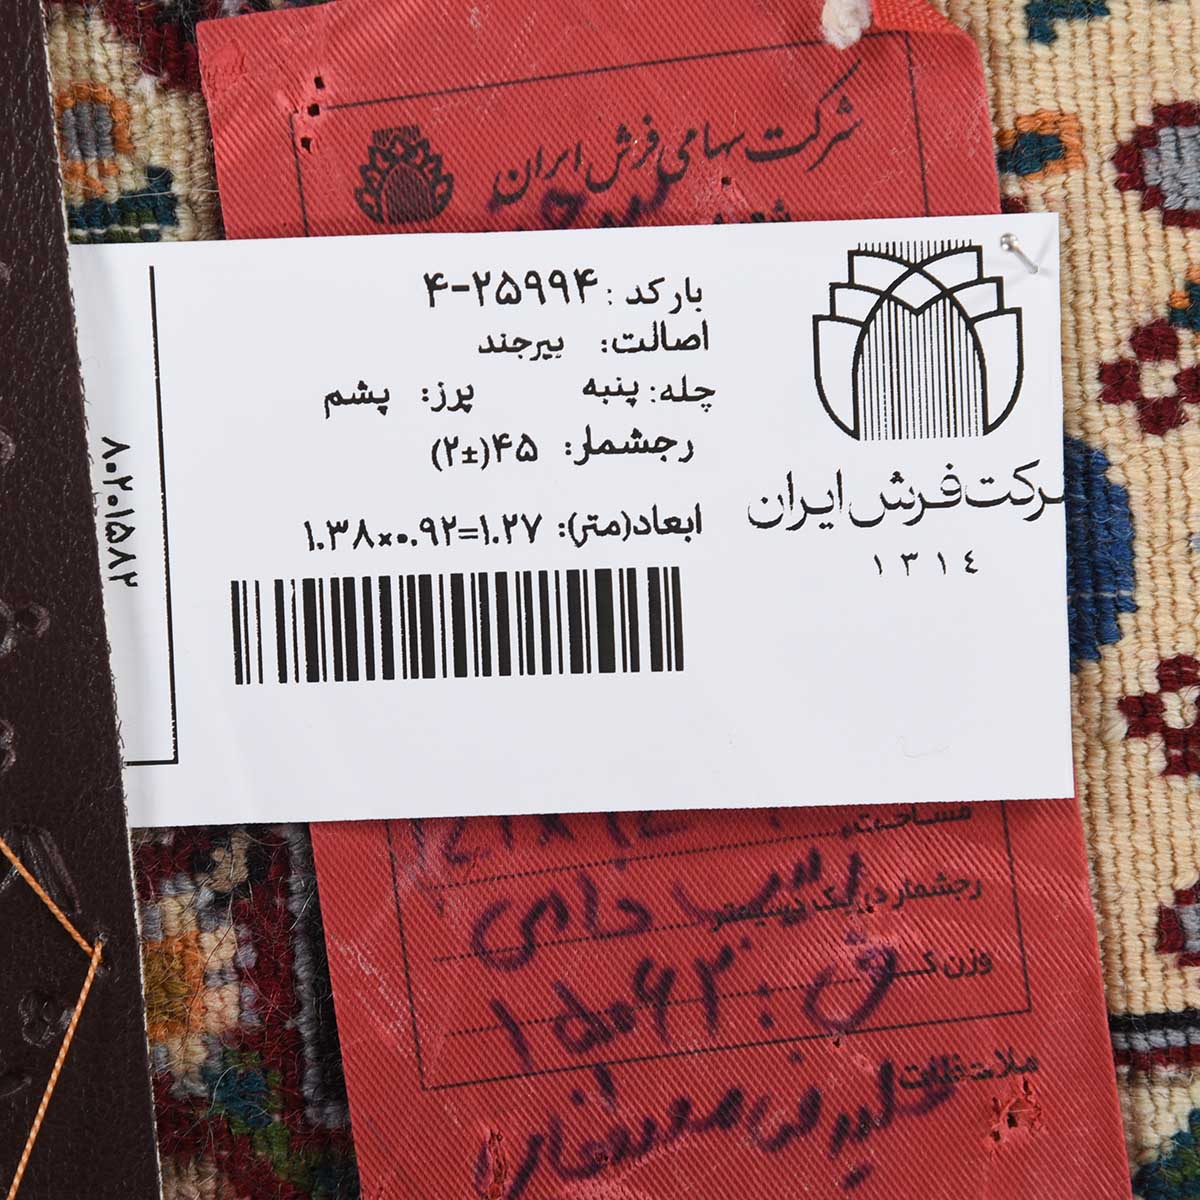 شرکت سهامی فرش ایران
بارکد : ۴-۲۵۹۹۴
اصالت: بیرجند
چله: پنبه پرز: پشم
رجشمار: ۴۵(±۲)
ابعاد(متر): ۱.۳۸×۰.۹۲=۱.۲۷
شرکت فرش ایران
١٣١٤
۸۰۲۰۱۵۸۲
مساحت
رجشمار در یک
وزن
ملاحظات